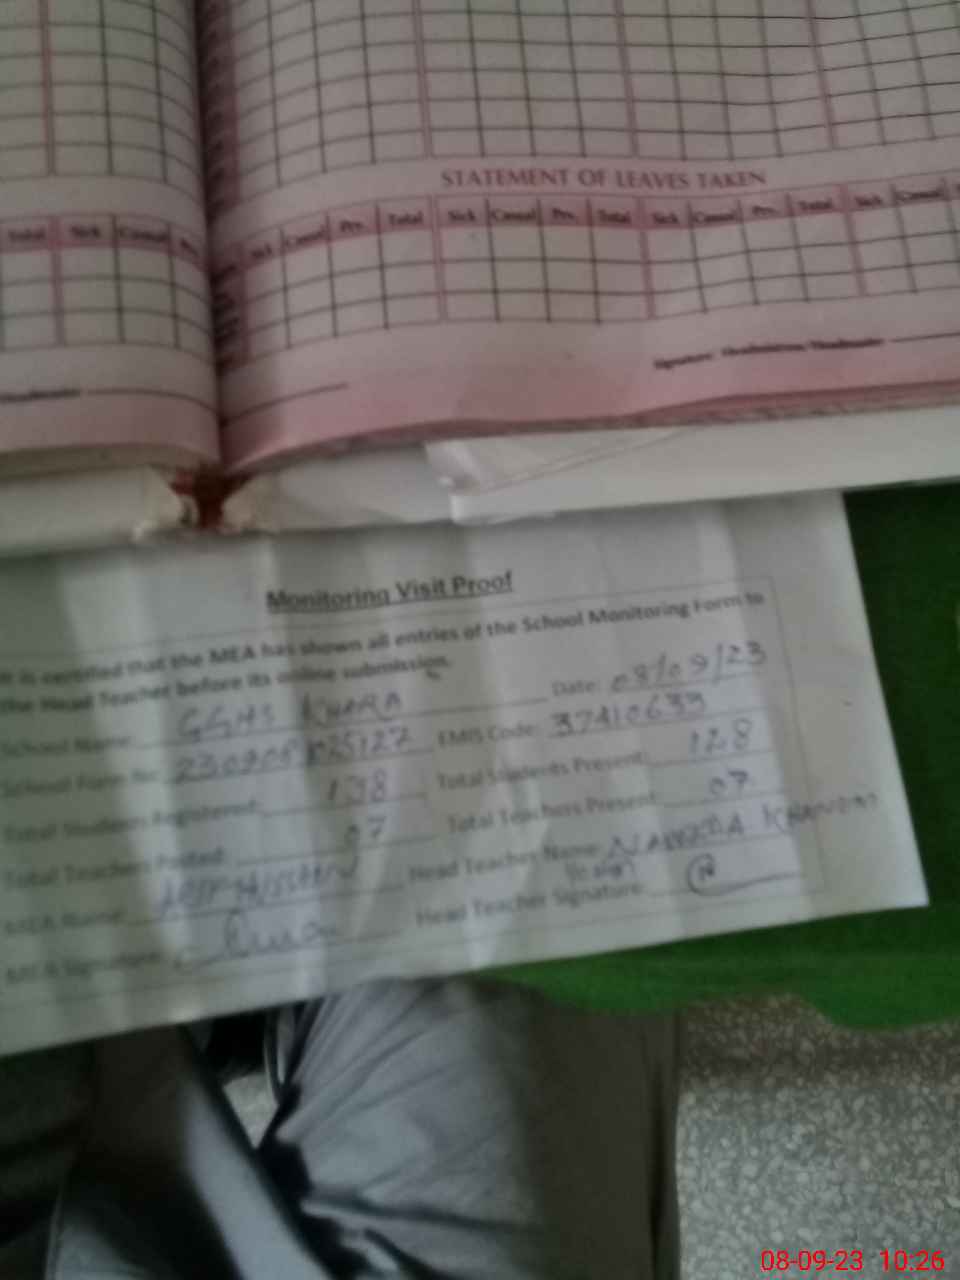 STATEMENT OF LEAVES TAKEN
Total Sick Casual Prv. Sick Casual Prv. Total Sick Casual Prv. Total Sick Casual Prv. Total Sick Casual
Signature Headmistress/Headmaster
Monitoring Visit Proof
It is certified that the MEA has shown all entries of the School Monitoring Form to
The Head Teacher before its online submission.
School Name: GGHS KHARA Date: 08/09/23
School Form No: EMIS Code: 37410633
Total Students Registered: 138 Total Students Present: 128
Total Teachers Posted: 07 Total Teachers Present: 07
MEA Name: Head Teacher Name:
MEA Signature: Head Teacher Signature:
08-09-23 10:26